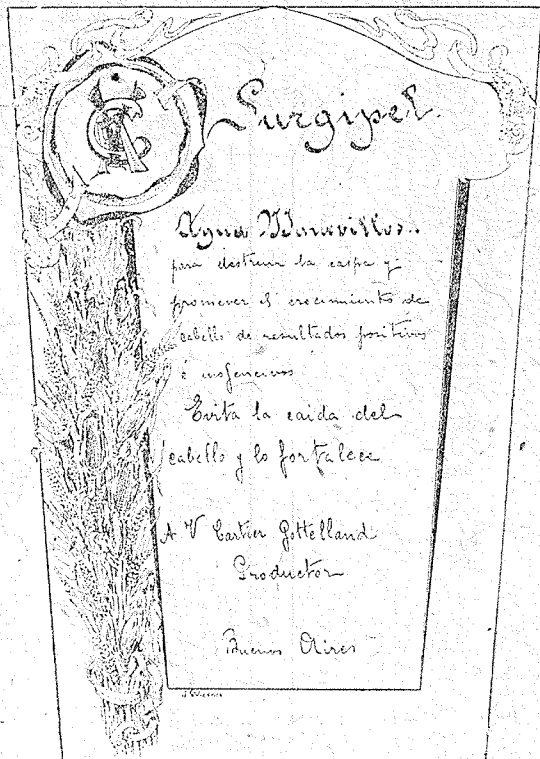 Surgipel
Agua Maravillosa
para destruir la caspa y
promover el crecimiento de
cabello de resultados positivos
é inofencivos
Evita la caida del
cabello y lo fortalece
A V Cartier Gottelland
Productor
Buenos Aires